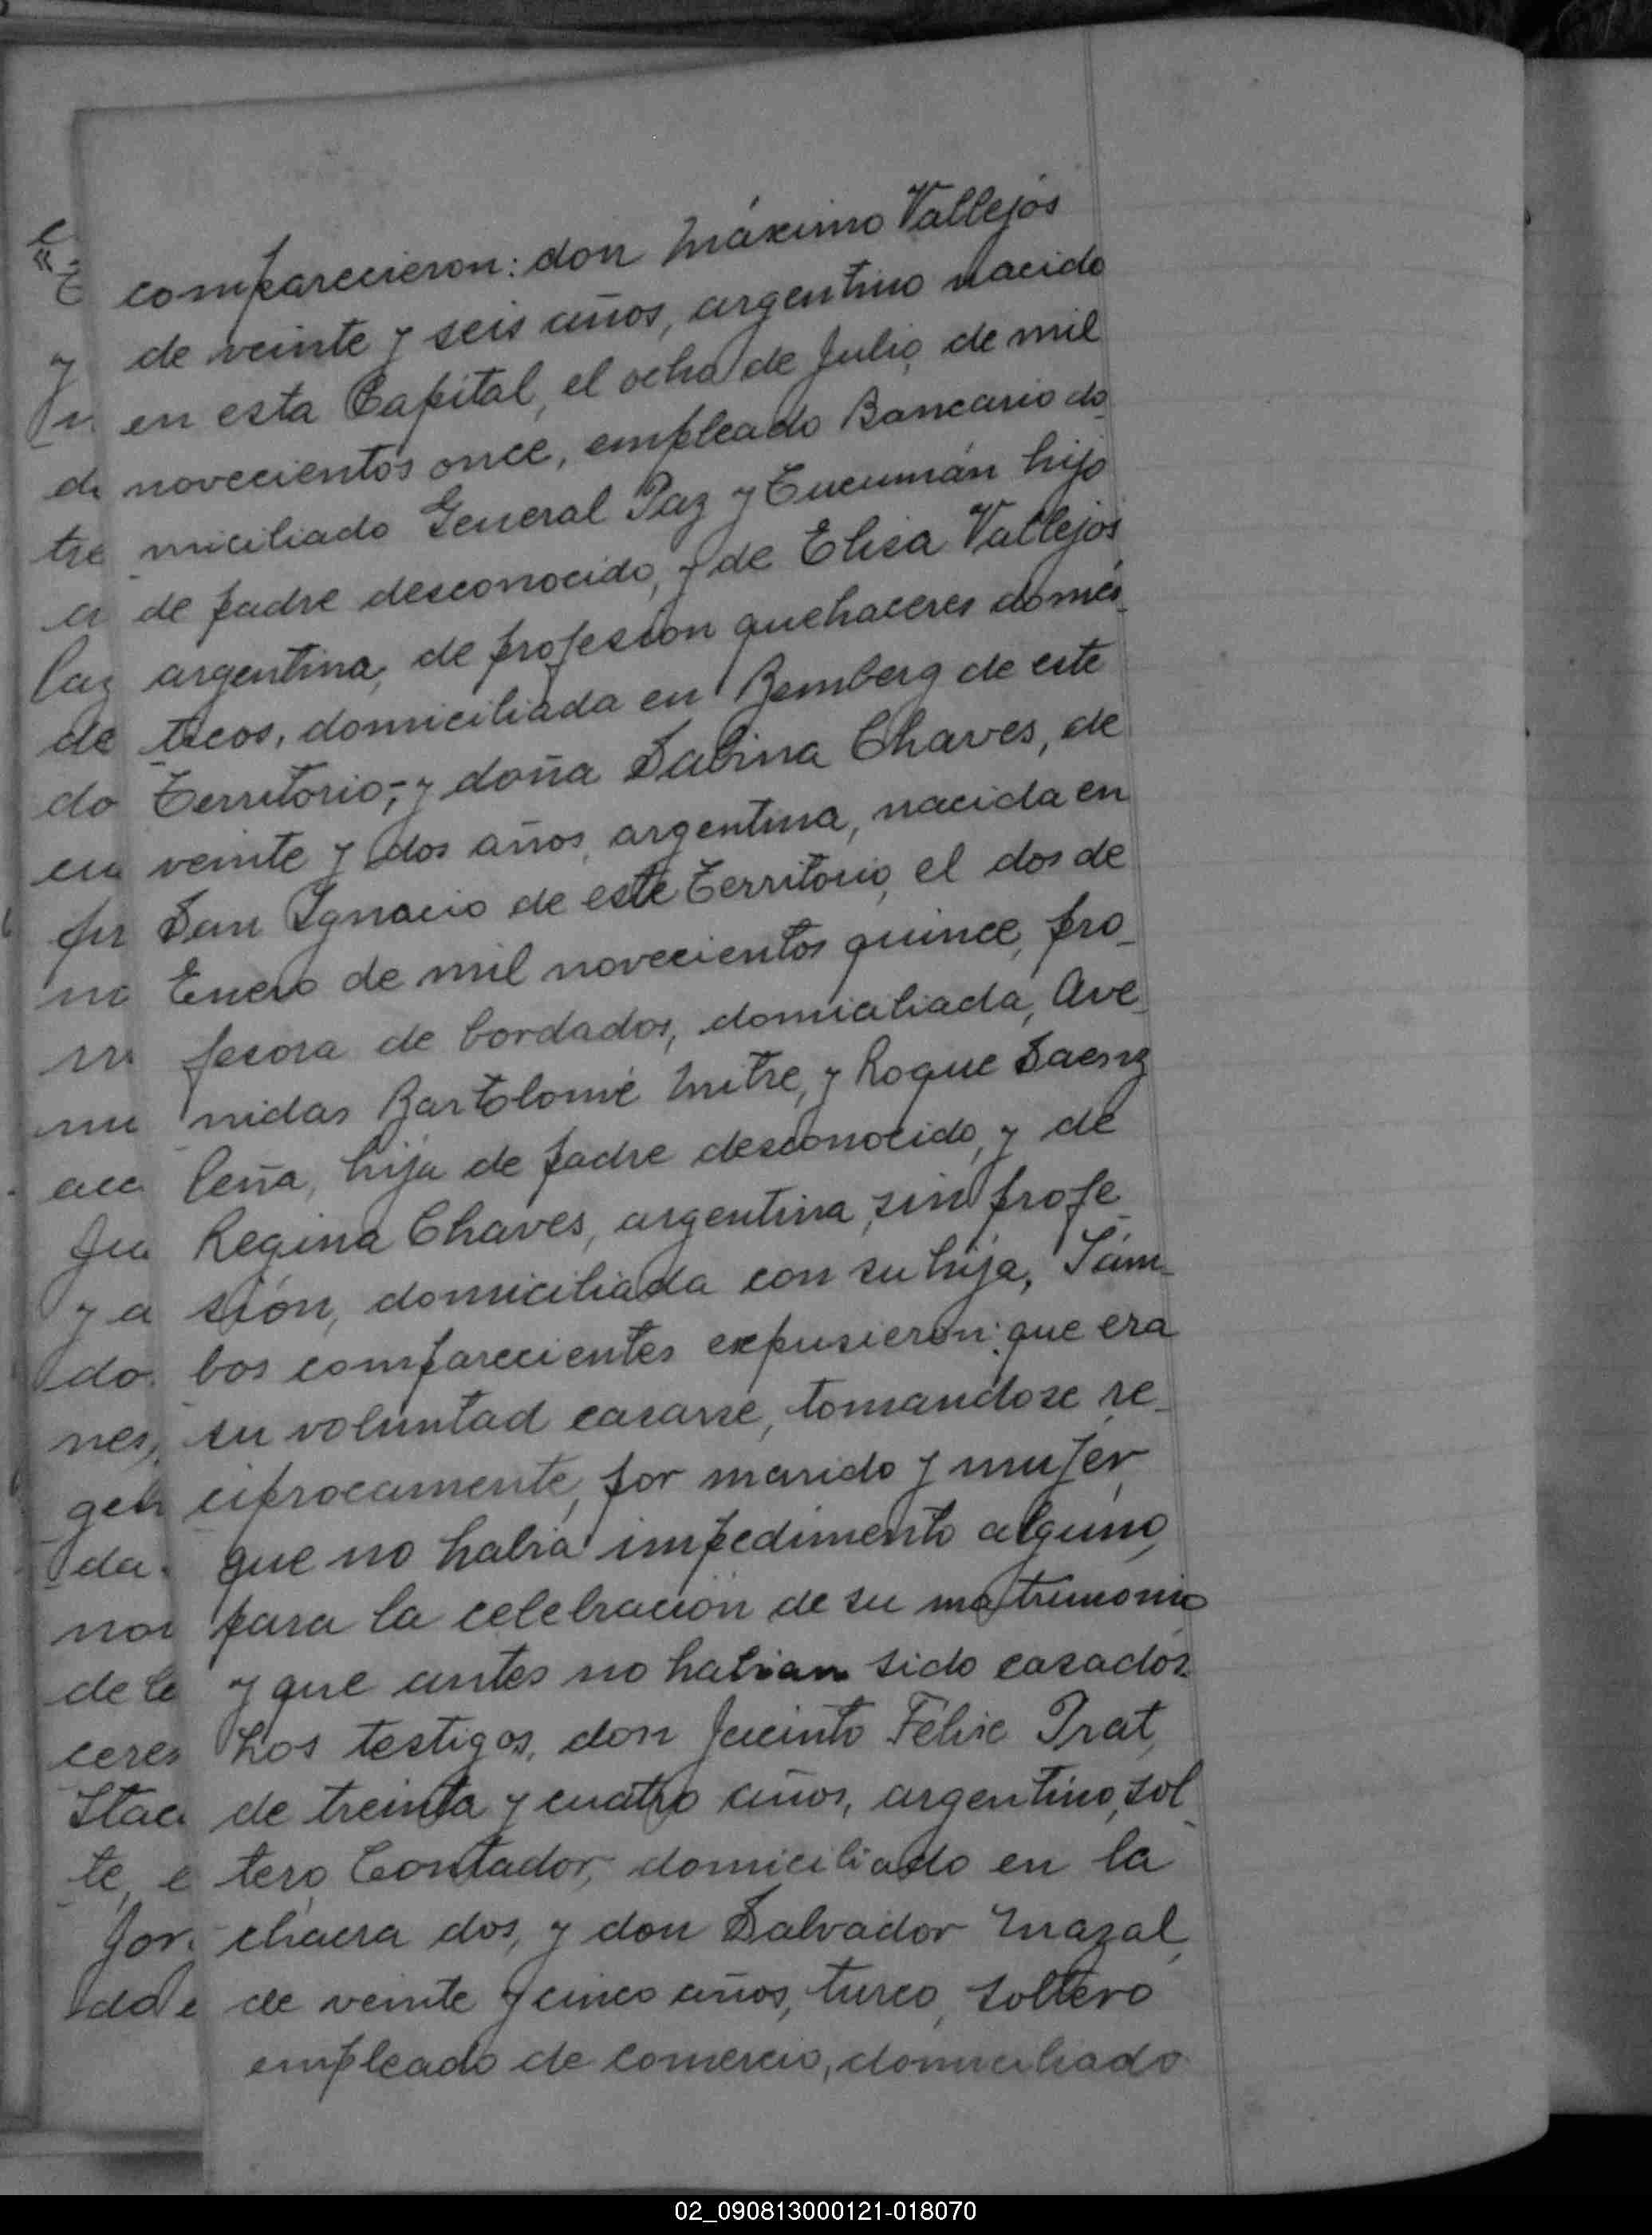 comparecieron: don Máximo Vallejos
de veinte y seis años, argentino nacido
en esta Capital, el ocho de Julio, de mil
novecientos once, empleado Bancario do_
miciliado General Paz y Tucumán hijo
de padre desconocido, y de Elisa Vallejos
argentina, de profesion quehaceres domés_
ticos, domiciliada en Bemberg de este
Territorio; y doña Sabina Chaves, de
veinte y dos años, argentina, nacida en
San Ignacio de este Territorio, el dos de
Enero de mil novecientos quince, pro_
fesora de bordados, domiciliada, Ave_
nidas Bartolomé Mitre, y Roque Saenz
Peña, hija de padre desconocido, y de
Regina Chaves, argentina, sin profe_
sión, domiciliada con su hija,
bos comparecientes expusieron: que era
su voluntad casarse, tomandose re_
ciprocamente, por marido y mujer,
que no habia impedimento alguno,
para la celebración de su matrimonio
y que antes no habian sido casados.
Los testigos, don Jacinto Félix Prat,
de treinta y cuatro años, argentino, sol_
tero, Contador, domiciliado en la
chacra dos, y don Salvador Mazal,
de veinte y cinco años, turco, soltero
empleado de comercio, domiciliado
02_090813000121-018070